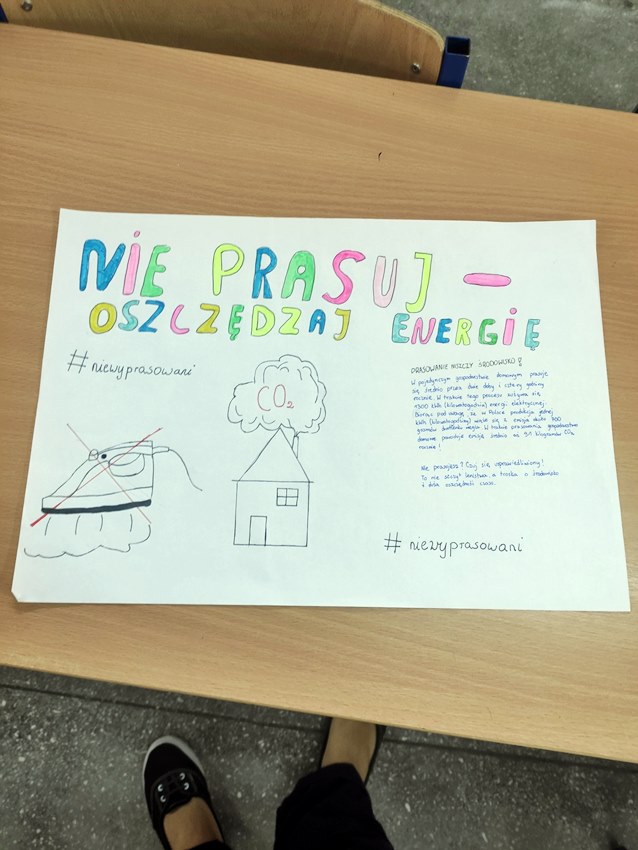 NIE PRASUJ –
OSZCZĘDZAJ ENERGIĘ
#niewyprasowani
CO₂
PRASOWANIE NISZCZY ŚRODOWISKO!
W pojedynczym gospodarstwie domowym prasuje
się średnio przez dwie doby i cztery godziny
rocznie. W trakcie tego procesu zużywa się
1300 kWh (kilowatogodzin) energii elektrycznej.
Biorąc pod uwagę, że w Polsce produkcja jednej
kWh (kilowatogodziny) wiąże się z emisją około 700
gramów dwutlenku węgla. W trakcie prasowania gospodarstwo
domowe powoduje emisję średnio na kilogramów CO₂
rocznie!
Nie prasujesz? Czuj się usprawiedliwiony!
To nie lenistwo, a troska o środowisko
i dziś oszczędność czasu.
#niewyprasowani